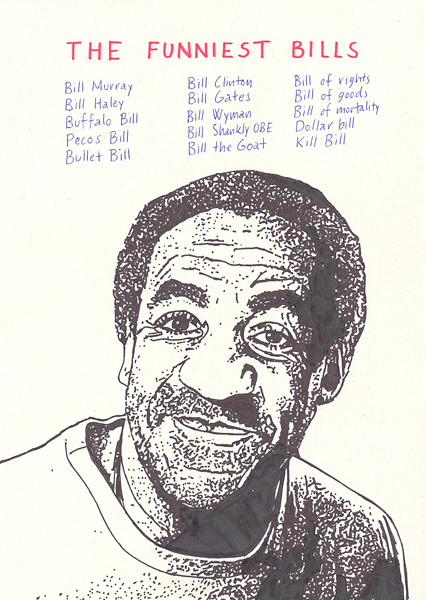 THE FUNNIEST BILLS
Bill Murray
Bill Haley
Buffalo Bill
Pecos Bill
Bullet Bill
Bill Clinton
Bill Gates
Bill Wyman
Bill Shankly OBE
Bill the Goat
Bill of rights
Bill of goods
Bill of mortality
Dollar bill
Kill Bill